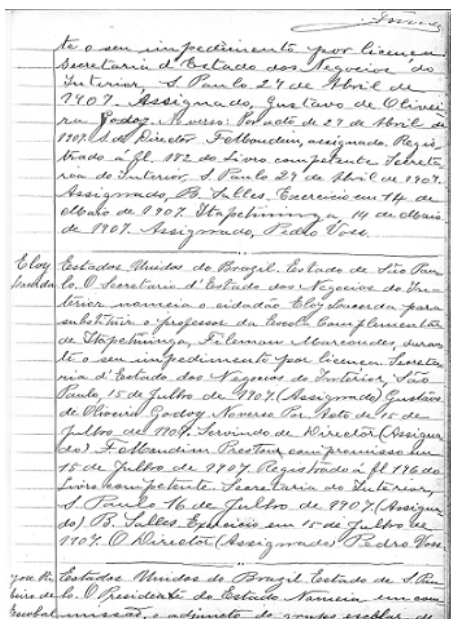 te o seu impedimento por licença.
Secretaria d'Estado dos Negocios do
Interior, S. Paulo 27 de Abril de
1907. Assignado, Gustavo de Olivei
ra Godoy. No verso: Por acto de 27 de Abril de
1907. S. de Director F. Mondim, assignado. Regis-
trado á fl. 182 do Livro competente Secreta
ria do Interior, S. Paulo 29 de Abril de 1907.
Assignado, B. Salles, Exercicio em 14 de
Maio de 1907. Itapetininga, 14 de Maio
de 1907. Assignado, Pedro Voss.
Eloy Estados Unidos do Brazil. Estado de São Pau
Lacerda lo. O Secretario d'Estado dos Negocios do In-
terior nomeia o cidadão Eloy Lacerda para
substituir o professor da Escola Complementar
de Itapetininga, Fileman Marcondes, duran
te o seu impedimento por licença. Secreta
ria d'Estado dos Negocios do Interior, São
Paulo, 15 de Julho de 1907. (Assignado) Gustavo
de Oliveira Godoy No verso Por Acto de 15 de
Julho de 1907. Servindo de Director (Assigna
do) F. Mondim Prestou compromisso em
15 de Julho de 1907. Registrado á fl 196 do
Livro competente. Secretaria do Interior,
S. Paulo 16 de Julho de 1907. (Assigna
do) B. Salles. Exercicio em 15 de Julho de
1907. O Director (Assignado) Pedro Voss
José Ri Estados Unidos do Brazil Estado de S. Pau
beiro de lo. O Presidente do Estado Nomeia em com
Escobar missão, o adjuncto do grupo escolar de